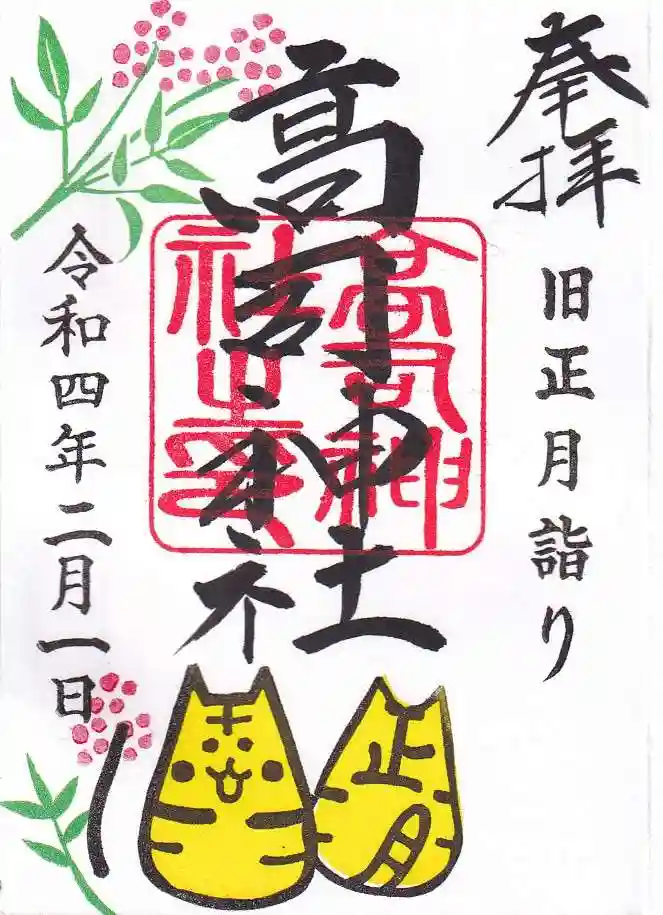 奉拝
旧正月詣り
高司神社
高司神社之印
令和四年二月一日
正月